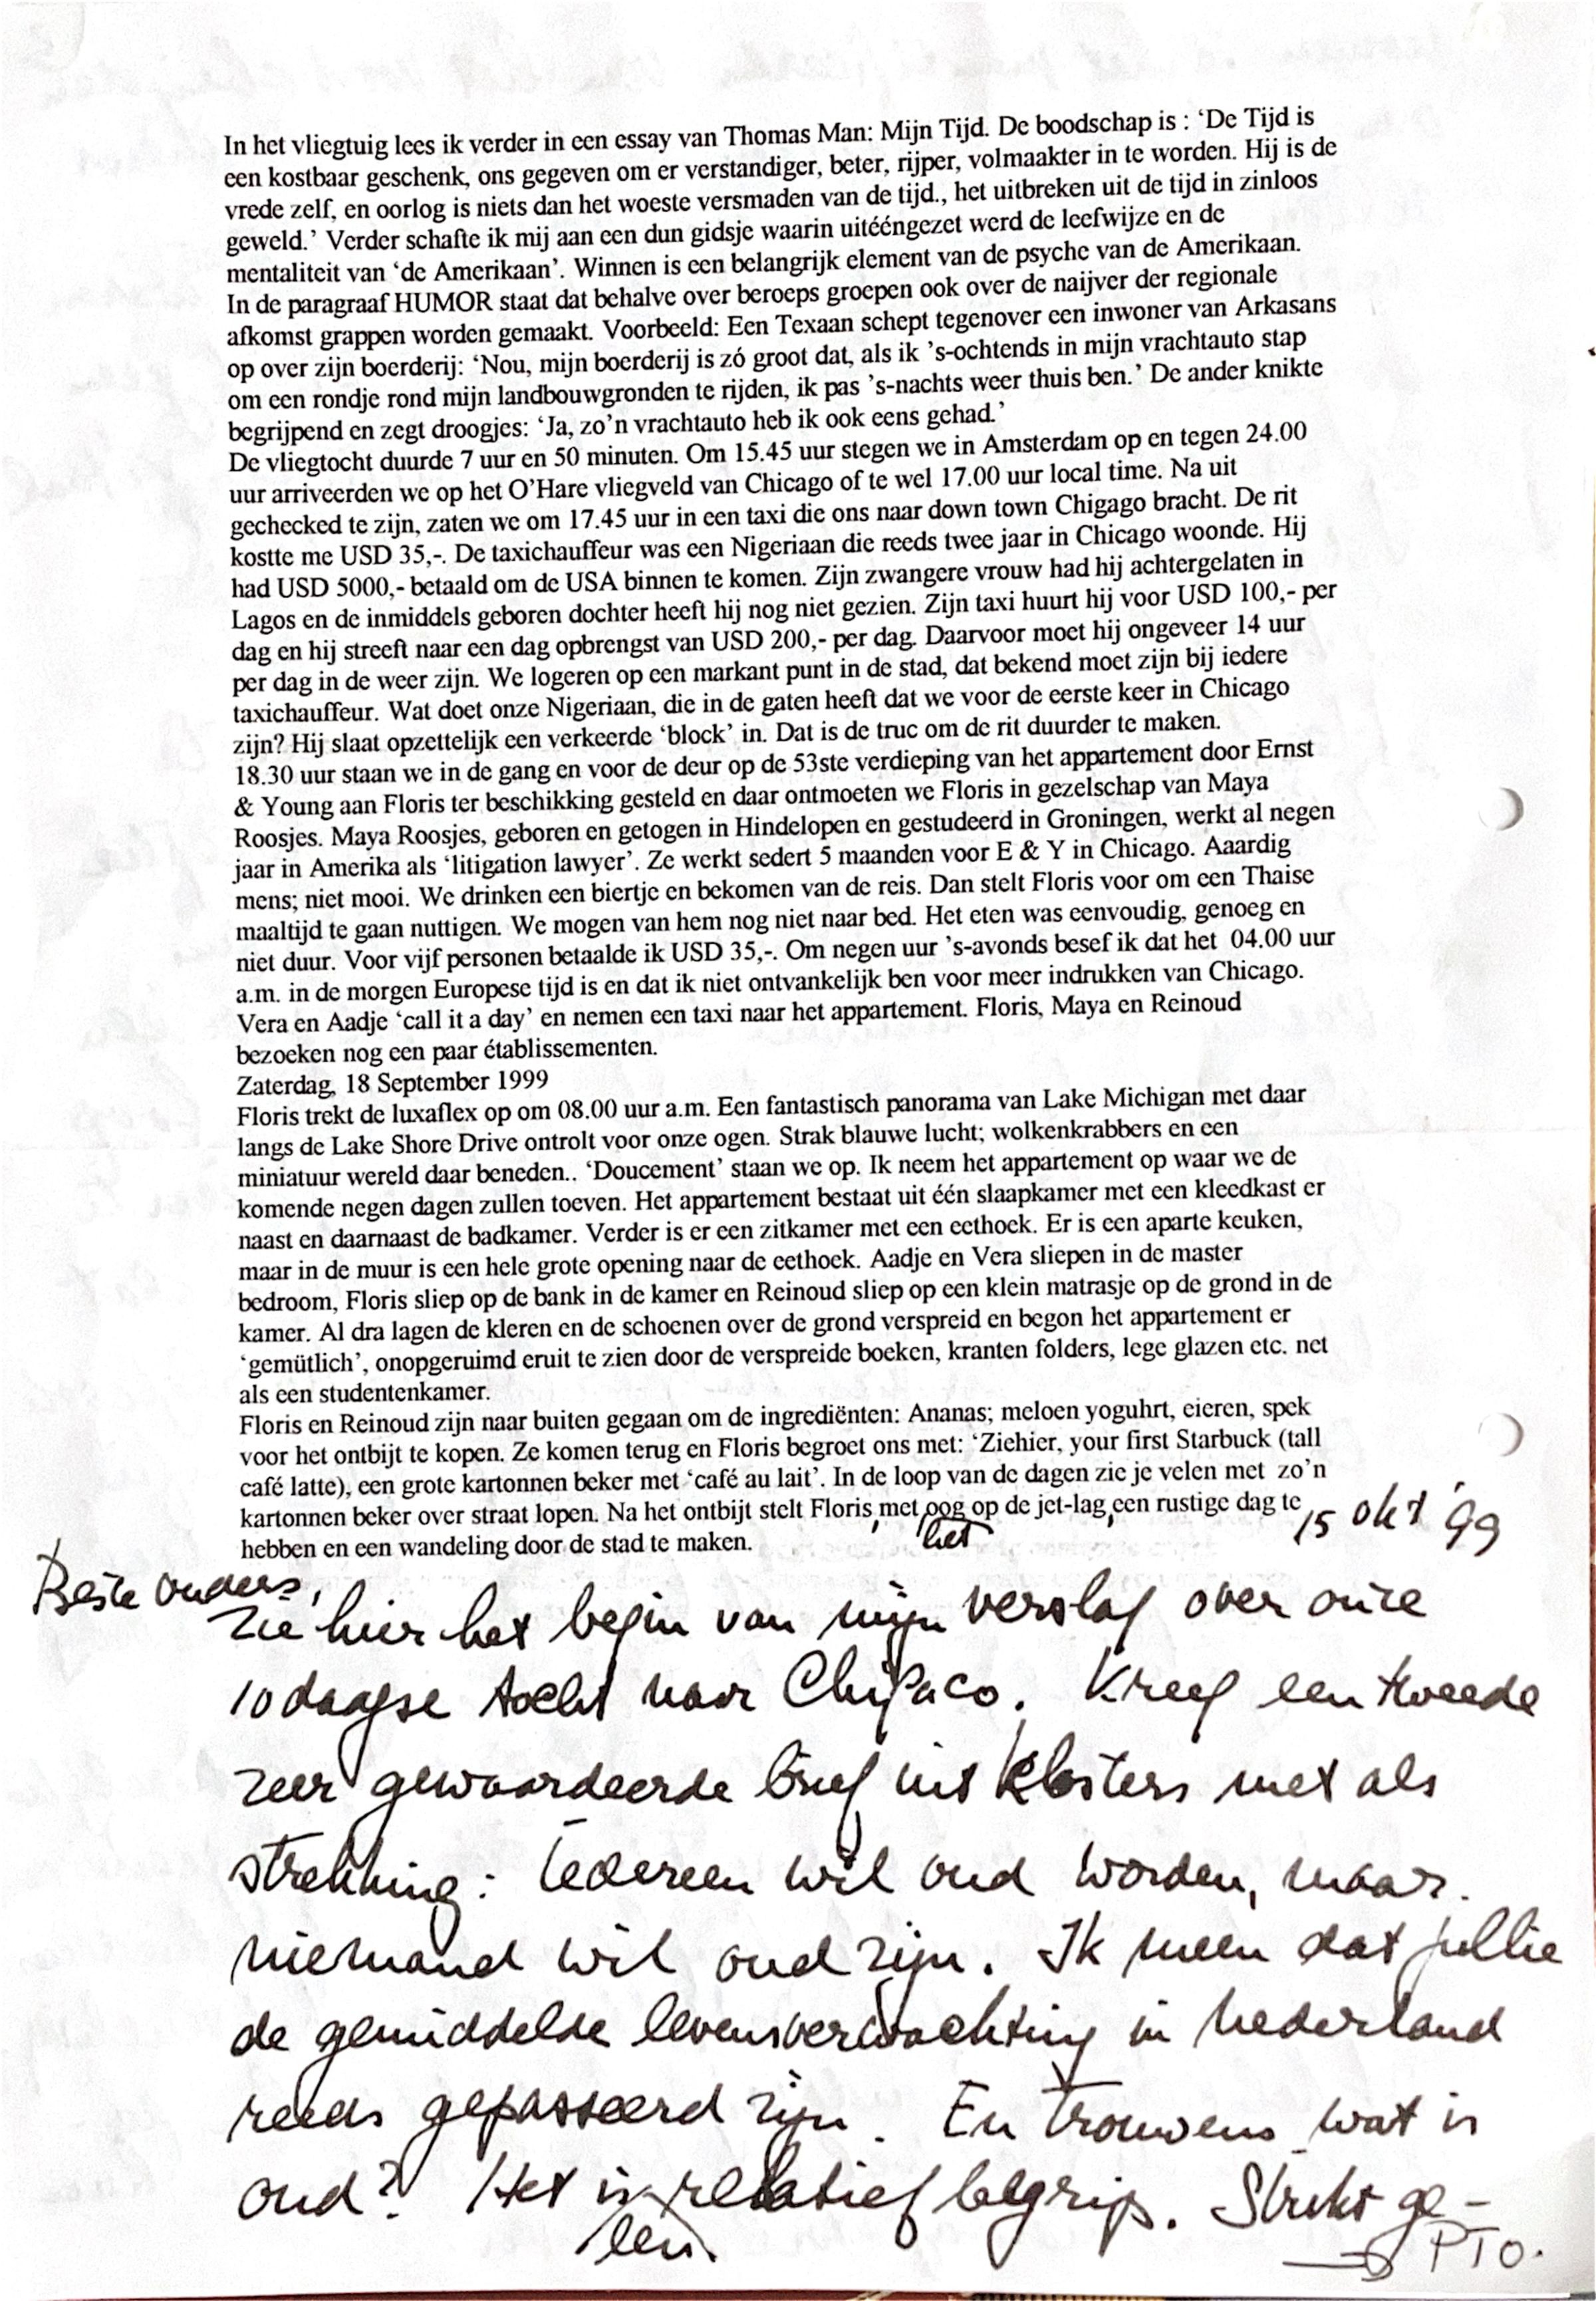 In het vliegtuig lees ik verder in een essay van Thomas Man: Mijn Tijd. De boodschap is : ‘De Tijd is
een kostbaar geschenk, ons gegeven om er verstandiger, beter, rijper, volmaakter in te worden. Hij is de
vrede zelf, en oorlog is niets dan het woeste versmaden van de tijd., het uitbreken uit de tijd in zinloos
geweld.’ Verder schafte ik mij aan een dun gidsje waarin uitééngezet werd de leefwijze en de
mentaliteit van ‘de Amerikaan’. Winnen is een belangrijk element van de psyche van de Amerikaan.
In de paragraaf HUMOR staat dat behalve over beroeps groepen ook over de naijver der regionale
afkomst grappen worden gemaakt. Voorbeeld: Een Texaan schept tegenover een inwoner van Arkasans
op over zijn boerderij: ‘Nou, mijn boerderij is zó groot dat, als ik ’s-ochtends in mijn vrachtauto stap
om een rondje rond mijn landbouwgronden te rijden, ik pas ’s-nachts weer thuis ben.’ De ander knikte
begrijpend en zegt droogjes: ‘Ja, zo’n vrachtauto heb ik ook eens gehad.’
De vliegtocht duurde 7 uur en 50 minuten. Om 15.45 uur stegen we in Amsterdam op en tegen 24.00
uur arriveerden we op het O’Hare vliegveld van Chicago of te wel 17.00 uur local time. Na uit
gechecked te zijn, zaten we om 17.45 uur in een taxi die ons naar down town Chigago bracht. De rit
kostte me USD 35,-. De taxichauffeur was een Nigeriaan die reeds twee jaar in Chicago woonde. Hij
had USD 5000,- betaald om de USA binnen te komen. Zijn zwangere vrouw had hij achtergelaten in
Lagos en de inmiddels geboren dochter heeft hij nog niet gezien. Zijn taxi huurt hij voor USD 100,- per
dag en hij streeft naar een dag opbrengst van USD 200,- per dag. Daarvoor moet hij ongeveer 14 uur
per dag in de weer zijn. We logeren op een markant punt in de stad, dat bekend moet zijn bij iedere
taxichauffeur. Wat doet onze Nigeriaan, die in de gaten heeft dat we voor de eerste keer in Chicago
zijn? Hij slaat opzettelijk een verkeerde ‘block’ in. Dat is de truc om de rit duurder te maken.
18.30 uur staan we in de gang en voor de deur op de 53ste verdieping van het appartement door Ernst
& Young aan Floris ter beschikking gesteld en daar ontmoeten we Floris in gezelschap van Maya
Roosjes. Maya Roosjes, geboren en getogen in Hindelopen en gestudeerd in Groningen, werkt al negen
jaar in Amerika als ‘litigation lawyer’. Ze werkt sedert 5 maanden voor E & Y in Chicago. Aaardig
mens; niet mooi. We drinken een biertje en bekomen van de reis. Dan stelt Floris voor om een Thaise
maaltijd te gaan nuttigen. We mogen van hem nog niet naar bed. Het eten was eenvoudig, genoeg en
niet duur. Voor vijf personen betaalde ik USD 35,-. Om negen uur ’s-avonds besef ik dat het 04.00 uur
a.m. in de morgen Europese tijd is en dat ik niet ontvankelijk ben voor meer indrukken van Chicago.
Vera en Aadje ‘call it a day’ en nemen een taxi naar het appartement. Floris, Maya en Reinoud
bezoeken nog een paar établissementen.
Zaterdag, 18 September 1999
Floris trekt de luxaflex op om 08.00 uur a.m. Een fantastisch panorama van Lake Michigan met daar
langs de Lake Shore Drive ontrolt voor onze ogen. Strak blauwe lucht; wolkenkrabbers en een
miniatuur wereld daar beneden.. ‘Doucement’ staan we op. Ik neem het appartement op waar we de
komende negen dagen zullen toeven. Het appartement bestaat uit één slaapkamer met een kleedkast er
naast en daarnaast de badkamer. Verder is er een zitkamer met een eethoek. Er is een aparte keuken,
maar in de muur is een hele grote opening naar de eethoek. Aadje en Vera sliepen in de master
bedroom, Floris sliep op de bank in de kamer en Reinoud sliep op een klein matrasje op de grond in de
kamer. Al dra lagen de kleren en de schoenen over de grond verspreid en begon het appartement er
‘gemütlich’, onopgeruimd eruit te zien door de verspreide boeken, kranten folders, lege glazen etc. net
als een studentenkamer.
Floris en Reinoud zijn naar buiten gegaan om de ingrediënten: Ananas; meloen yoguhrt, eieren, spek
voor het ontbijt te kopen. Ze komen terug en Floris begroet ons met: ‘Ziehier, your first Starbuck (tall
café latte), een grote kartonnen beker met ‘café au lait’. In de loop van de dagen zie je velen met zo’n
kartonnen beker over straat lopen. Na het ontbijt stelt Floris, met oog op de jet-lag, een rustige dag te
het
hebben en een wandeling door de stad te maken.
15 okt '99
Beste ouders,
Zie hier het begin van mijn verslag over onze
10 daagse tocht naar Chicaco. Kreeg een tweede
zeer gewaardeerde brief uit Klosters met als
strekking: Iedereen wil oud worden, maar
niemand wil oud zijn. Ik meen dat jullie
de gemiddelde levensverwachting in Nederland
reeds gepasseerd zijn. En trouwens wat is
oud? Het is relatief begrip. Strikt ge-
een
→ PTO.